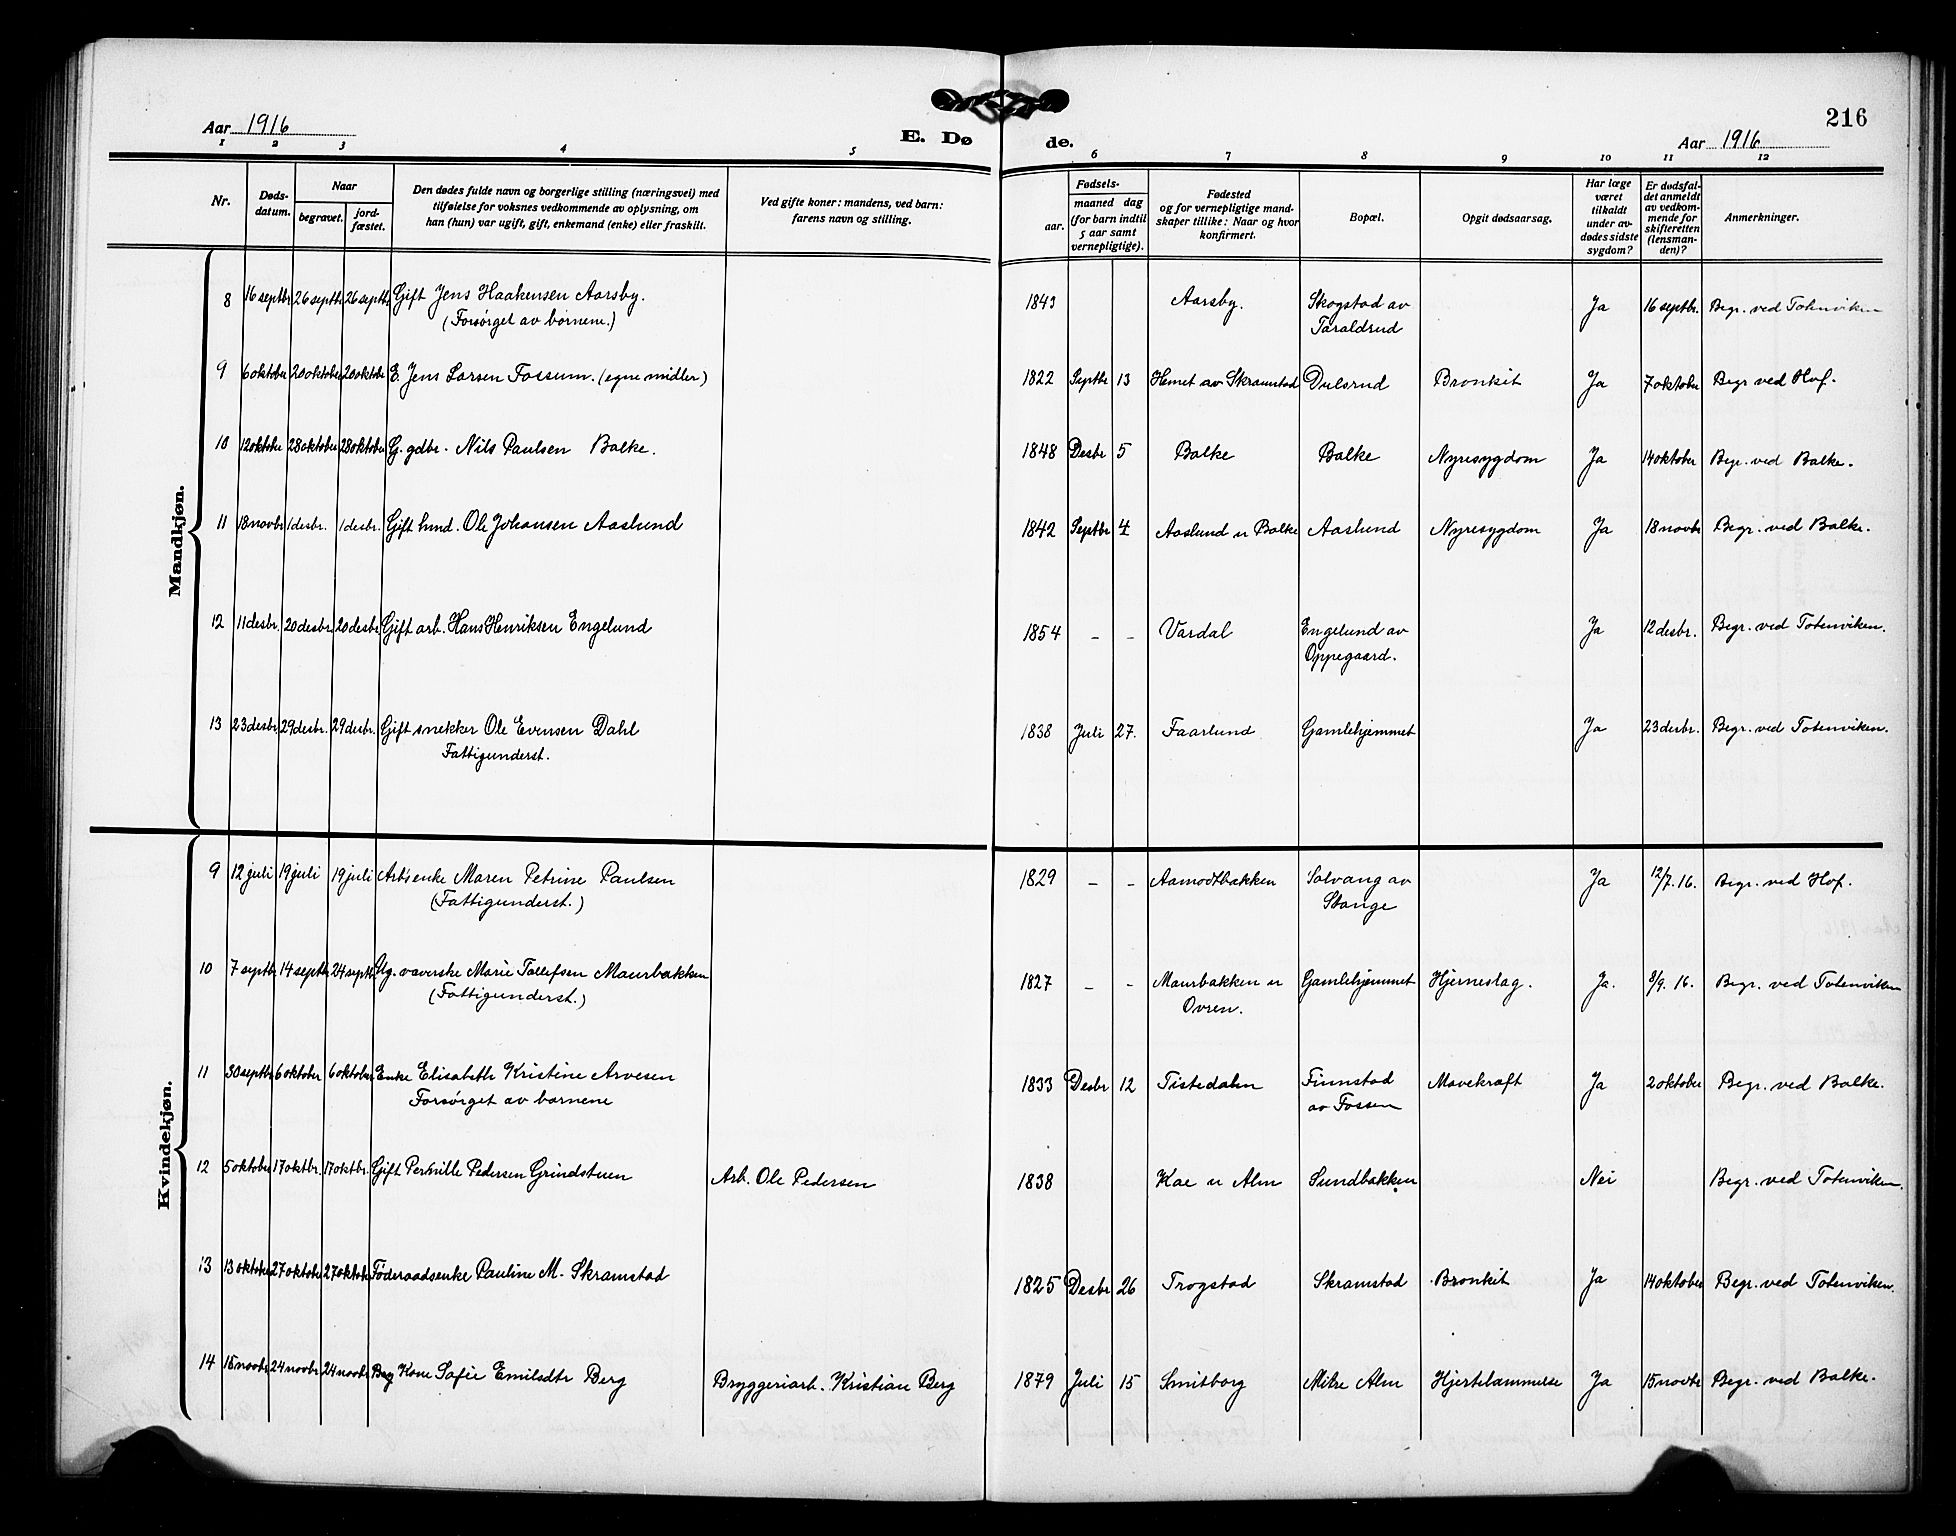 216
Aar 1916
E. Dø de.
Aar 1916
1 2 3 4 5 6 7 8 9 10 11 12
Nr.
Døds-
datum.
Naar
begravet.
jord-
fæstet.
Den dødes fulde navn og borgerlige stilling (næringsvei) med
tilføielse for voksnes vedkommende av oplysning, om
han (hun) var ugift, gift, enkemand (enke) eller fraskilt.
Ved gifte koner: mandens, ved barn:
farens navn og stilling.
Fødsels-
aar.
maaned dag
(for barn indtil
5 aar samt
vernepligtige).
Fødested
og for vernepligtige mand-
skaper tillike: Naar og hvor
konfirmert.
Bopæl.
Opgit dødsaarsag.
Har læge
været
tilkaldt
under av-
dødes sidste
sygdom?
Er dødsfal-
det anmeldt
av vedkom-
mende for
skifteretten
(lensman-
den)?
Anmerkninger.
Mandkjøn.
8 16 septbr 26 septbr 26 septbr Gift Jens Haakensen Aarsby. 1843 Aarsby. Skogstad av Ja 16 septbr. Begr. ved Totenviken
(Forsørget av børnene.) Taraldrud
9 6 oktober 20 oktober 20 oktober E. Jens Larsen Fossum. (egne midler) 1822 Septbr 13 Hemet av Skramstad Dulsrud Bronkit Ja 7 oktober Begr. ved Hof.
10 12 oktober 28 oktober 28 oktober G. gdbr. Nils Paulsen Balke. 1848 Desbr 5 Balke Balke Nyresygdom Ja 14 oktober Begr. ved Balke.
11 18 novbr 1 desbr. 1 desbr. Gift hmd. Ole Johansen Aaslund 1842 Septbr 4 Aaslund u Balke Aaslund Nyresygdom Ja 18 novbr Begr. ved Balke.
12 11 desbr. 20 desbr. 20 desbr Gift arb. Hans Henriksen Engelund 1854 - - Vardal Engelund av Ja 12 desbr. Begr. ved Totenviken.
Oppegaard.
13 23 desbr 29 desbr. 29 desbr. Gift snekker Ole Evensen Dahl 1838 Juli 27. Faarlund Gamlehjemmet Ja 23 desbr. Begr. ved Totenviken.
Fattigunderst.
Kvindekjøn.
9 12 juli 19 juli 19 juli Arb's enke Maren Petrine Paulsen 1829 - - Aamodtbakken Solvang av Ja 12/7. 16. Begr. ved Hof.
(Fattigunderst.) Stange
10 7 septbr 14 septbr 24 septbr Ug. væverske Marie Tollefsen Maurbakken 1827 - - Maurbakken u Gamlehjemmet Hjerneslag. Ja. 8/9. 16. Begr. ved Totenviken
(Fattigunderst.) Ovren.
11 30 septbr 6 oktober 6 oktober Enke Elisabeth Kristine Arvesen 1833 Desbr 12 Tistedalen Finnstad Mavekræft Ja 2 oktober Begr. ved Balke.
Forsørget av børnene av Fossen
12 5 oktober 17 oktbr. 17 oktbr. Gift Pernille Pedersen Grindstuen Arb. Ole Pedersen 1838 Kae u Alm Sundbakken Nei Begr. ved Totenviken.
13 13 oktober 27 oktober 27 oktober Føderaadsenke Pauline M. Skramstad 1825 Desbr 26 Trogstad Skramstad Bronkit Ja 14 oktober Begr. ved Totenviken.
14 15 novbr 24 novbr. 24 novbr. Kone Sofie Emilsdtr Berg Bryggeriarb. Kristian Berg 1879 Juli 15 Smitborg Mitre Alm Hjertelammelse Ja 15 novbr Begr. ved Balke.